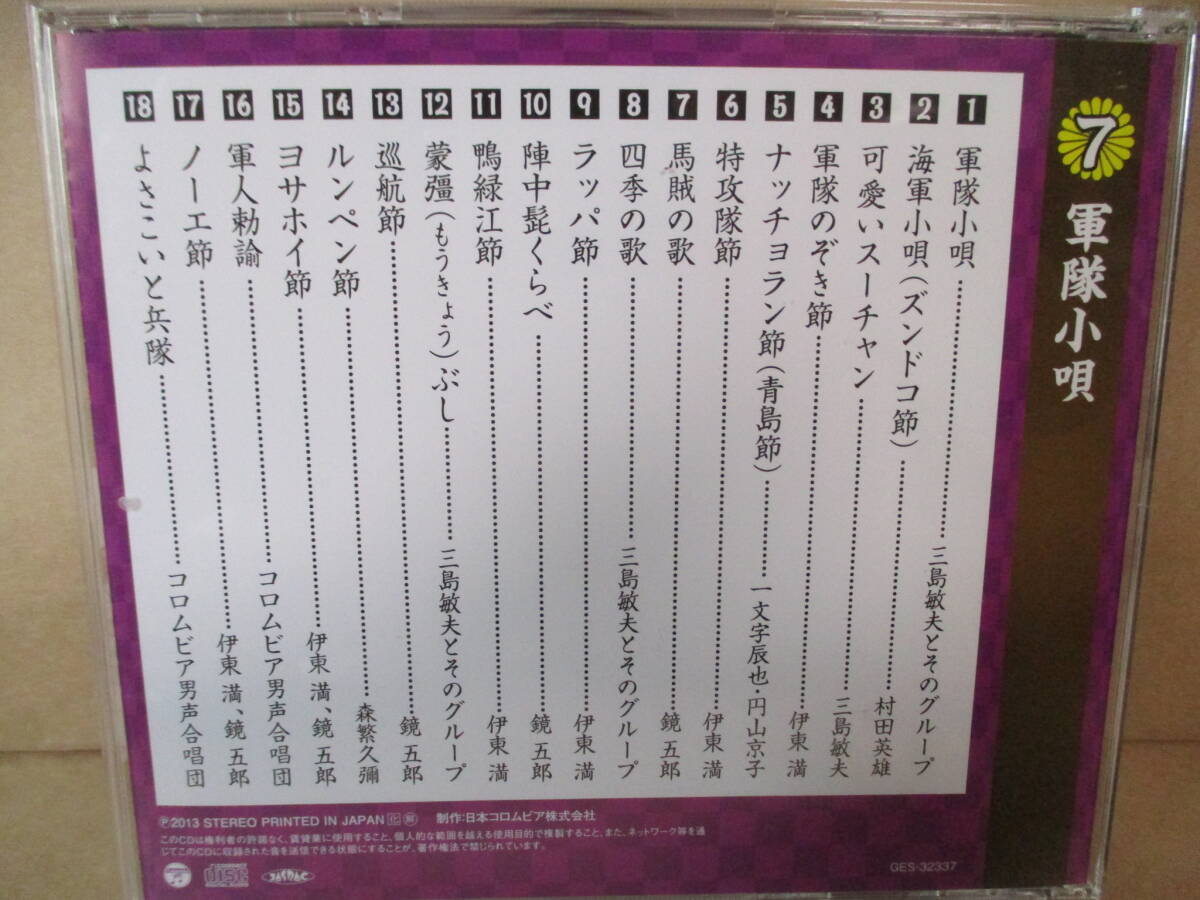 7 軍隊小唄
1 軍隊小唄……三島敏夫とそのグループ
2 海軍小唄(ズンドコ節)……村田英雄
3 可愛いスーチャン……三島敏夫
4 軍隊のぞき節……伊東 満
5 ナッチョラン節(青島節)……一文字辰也・円山京子
6 特攻隊節……伊東 満
7 馬賊の歌……鏡 五郎
8 四季の歌……三島敏夫とそのグループ
9 ラッパ節……伊東 満
10 陣中髭くらべ……鏡 五郎
11 鴨緑江節……伊東 満
12 蒙彊(もうきょう)ぶし……三島敏夫とそのグループ
13 巡航節……鏡 五郎
14 ルンペン節……森繁久彌
15 ヨサホイ節……伊東 満、鏡 五郎
16 軍人勅諭……コロムビア男声合唱団
17 ノーエ節……伊東 満、鏡 五郎
18 よさこいと兵隊……コロムビア男声合唱団
Ⓟ2013 STEREO PRINTED IN JAPAN 制作:日本コロムビア株式会社
このCDは権利者の許諾なく、賃貸業に使用すること、個人的な範囲を越える使用目的で複製すること、また、ネットワーク等を通
じてこのCDに収録された音を送信できる状態にすることが、著作権法で禁じられています。
COMPACT DISC DIGITAL AUDIO JASRAC
GES-32337